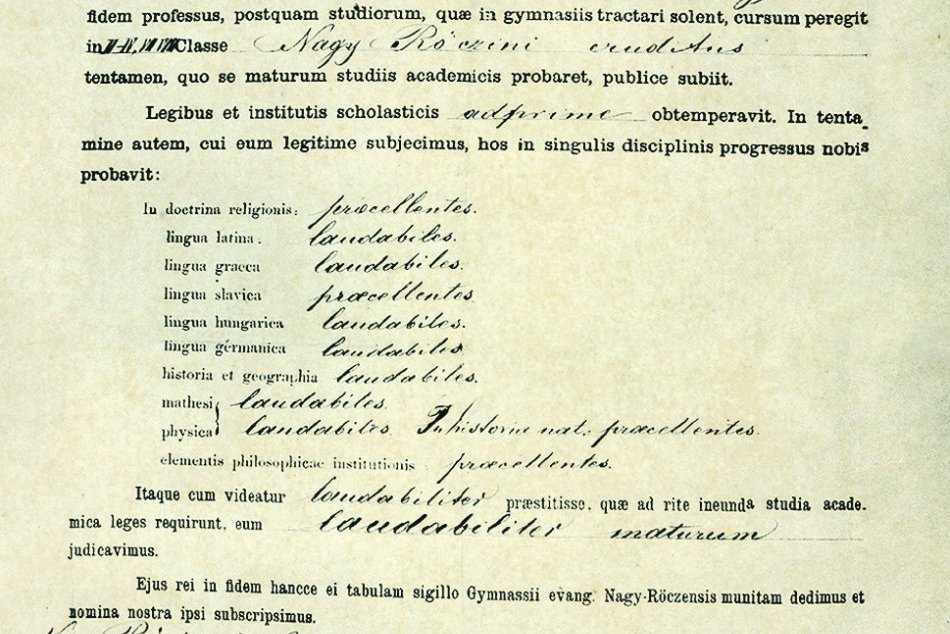 fidem professus, postquam studiorum, quæ in gymnasiis tractari solent, cursum peregit
in Classe Nagy Röczini eruditus
tentamen, quo se maturum studiis academicis probaret, publice subiit.
Legibus et institutis scholasticis adprime obtemperavit. In tenta-
mine autem, cui eum legitime subjecimus, hos in singulis disciplinis progressus nobis
probavit:
In doctrina religionis: præcellentes.
lingua latina. laudabiles.
lingua graeca laudabiles.
lingua slavica præcellentes.
lingua hungarica laudabiles.
lingua gérmanica laudabiles
historia et geographia laudabiles.
mathesi laudabiles.
physica laudabiles. In historia nat. præcellentes.
elementis philosophicae institutionis præcellentes.
Itaque cum videatur laudabiliter præstitisse, quæ ad rite ineunda studia acade-
mica leges requirunt, eum laudabiliter maturum
judicavimus.
Ejus rei in fidem hancce ei tabulam sigillo Gymnassii evang. Nagy-Röczensis munitam dedimus et
nomina nostra ipsi subscripsimus.